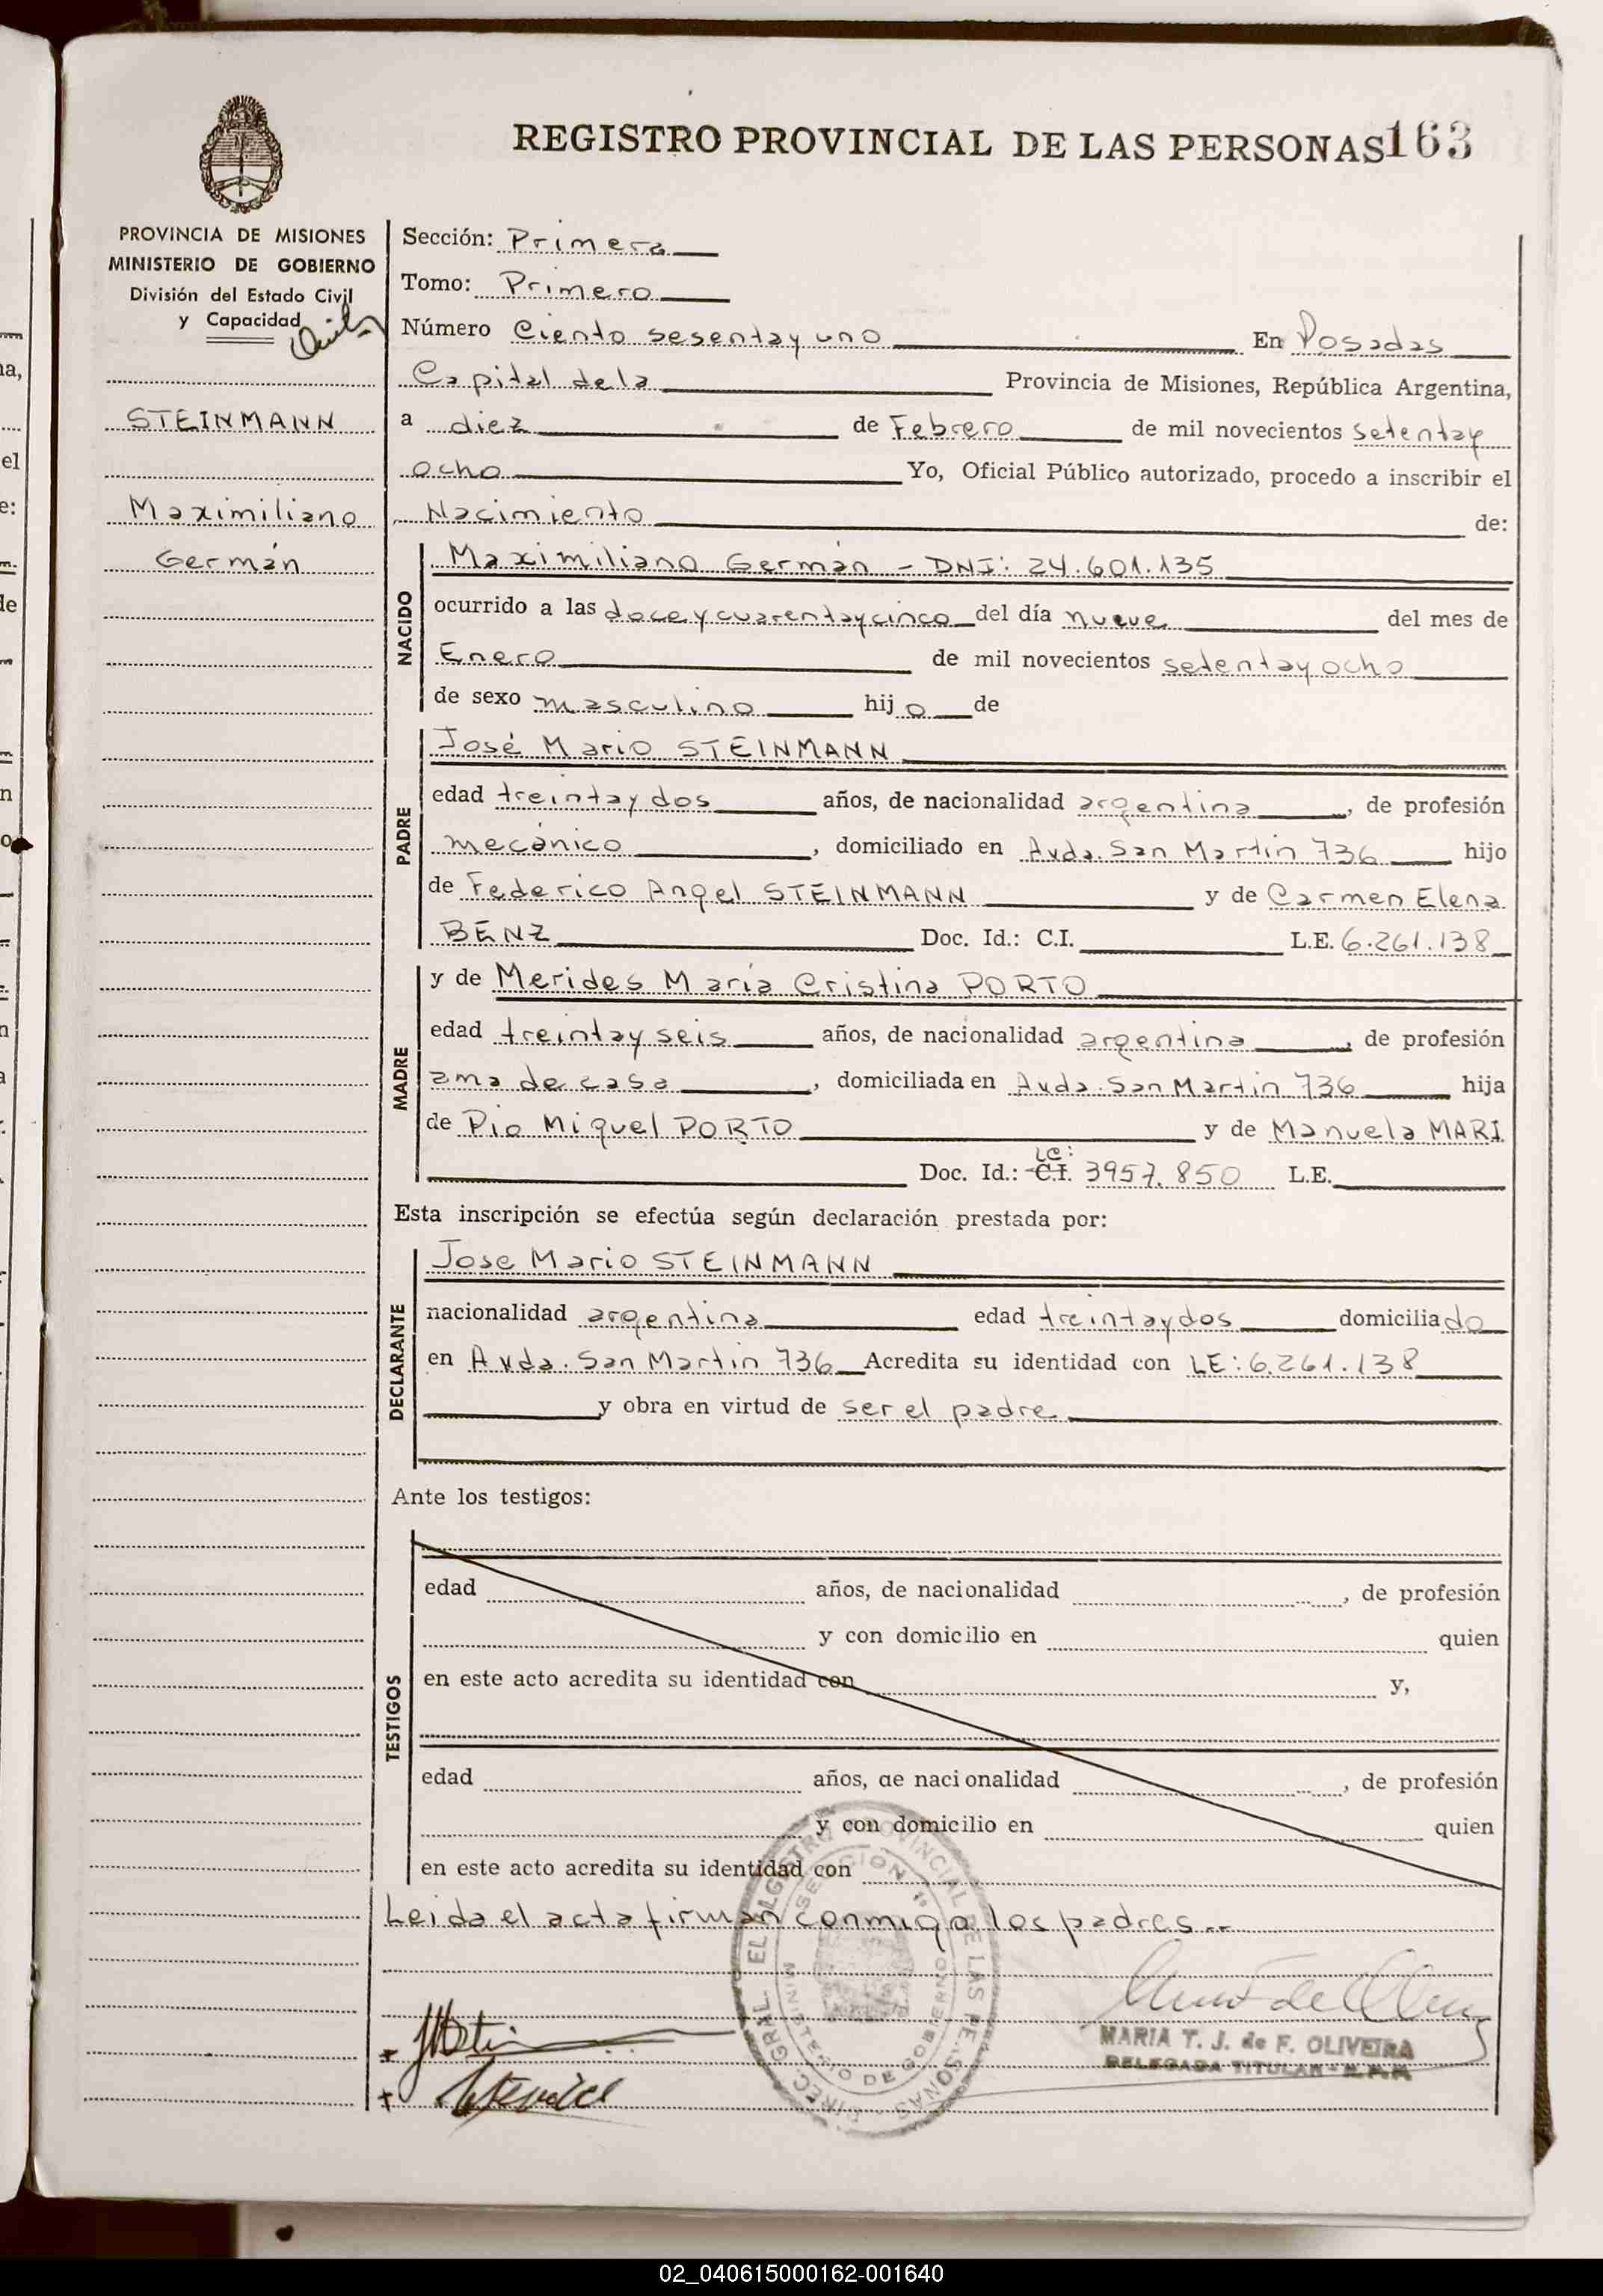 REGISTRO PROVINCIAL DE LAS PERSONAS 163
PROVINCIA DE MISIONES
MINISTERIO DE GOBIERNO
División del Estado Civil
y Capacidad
STEINMANN
Maximiliano
Germán
Sección: Primera
Tomo: Primero
Número Ciento sesentay uno En Posadas
Capital de la Provincia de Misiones, República Argentina,
a diez de Febrero de mil novecientos setentay
ocho Yo, Oficial Público autorizado, procedo a inscribir el
Nacimiento de:
NACIDO
Maximiliano Germán - DNI: 24.601.135
ocurrido a las doce y cuarentaycinco del día nueve del mes de
Enero de mil novecientos setentay ocho
de sexo masculino hijo de
PADRE
José Mario STEINMANN
edad treintay dos años, de nacionalidad argentina, de profesión
mecánico, domiciliado en Avda. San Martín 736 hijo
de Federico Angel STEINMANN y de Carmen Elena
BENZ Doc. Id.: C.I. L.E. 6.261.138
MADRE
y de Merides María Cristina PORTO
edad treintay seis años, de nacionalidad argentina, de profesión
ama de casa, domiciliada en Avda. San Martin 736 hija
de Pio Miguel PORTO y de Manuela MARI
LC:
Doc. Id.: C.I. 3957.850 L.E.
Esta inscripción se efectúa según declaración prestada por:
DECLARANTE
Jose Mario STEINMANN
nacionalidad argentina edad treintaydos domiciliado
en Avda. San Martin 736 Acredita su identidad con LE: 6.261.138
y obra en virtud de ser el padre
Ante los testigos:
TESTIGOS
edad años, de nacionalidad , de profesión
y con domicilio en quien
en este acto acredita su identidad con y,
edad años, de nacionalidad , de profesión
y con domicilio en quien
en este acto acredita su identidad con
Leida el acta firman conmigo los padres..
DIREC. GRAL. EL REGISTRO PROVINCIAL DE LAS PERSONAS
SECCION 1ª
MINISTERIO DE GOBIERNO
MARIA T. J. de F. OLIVEIRA
DELEGADA TITULAR - R.P.P.
02_040615000162-001640